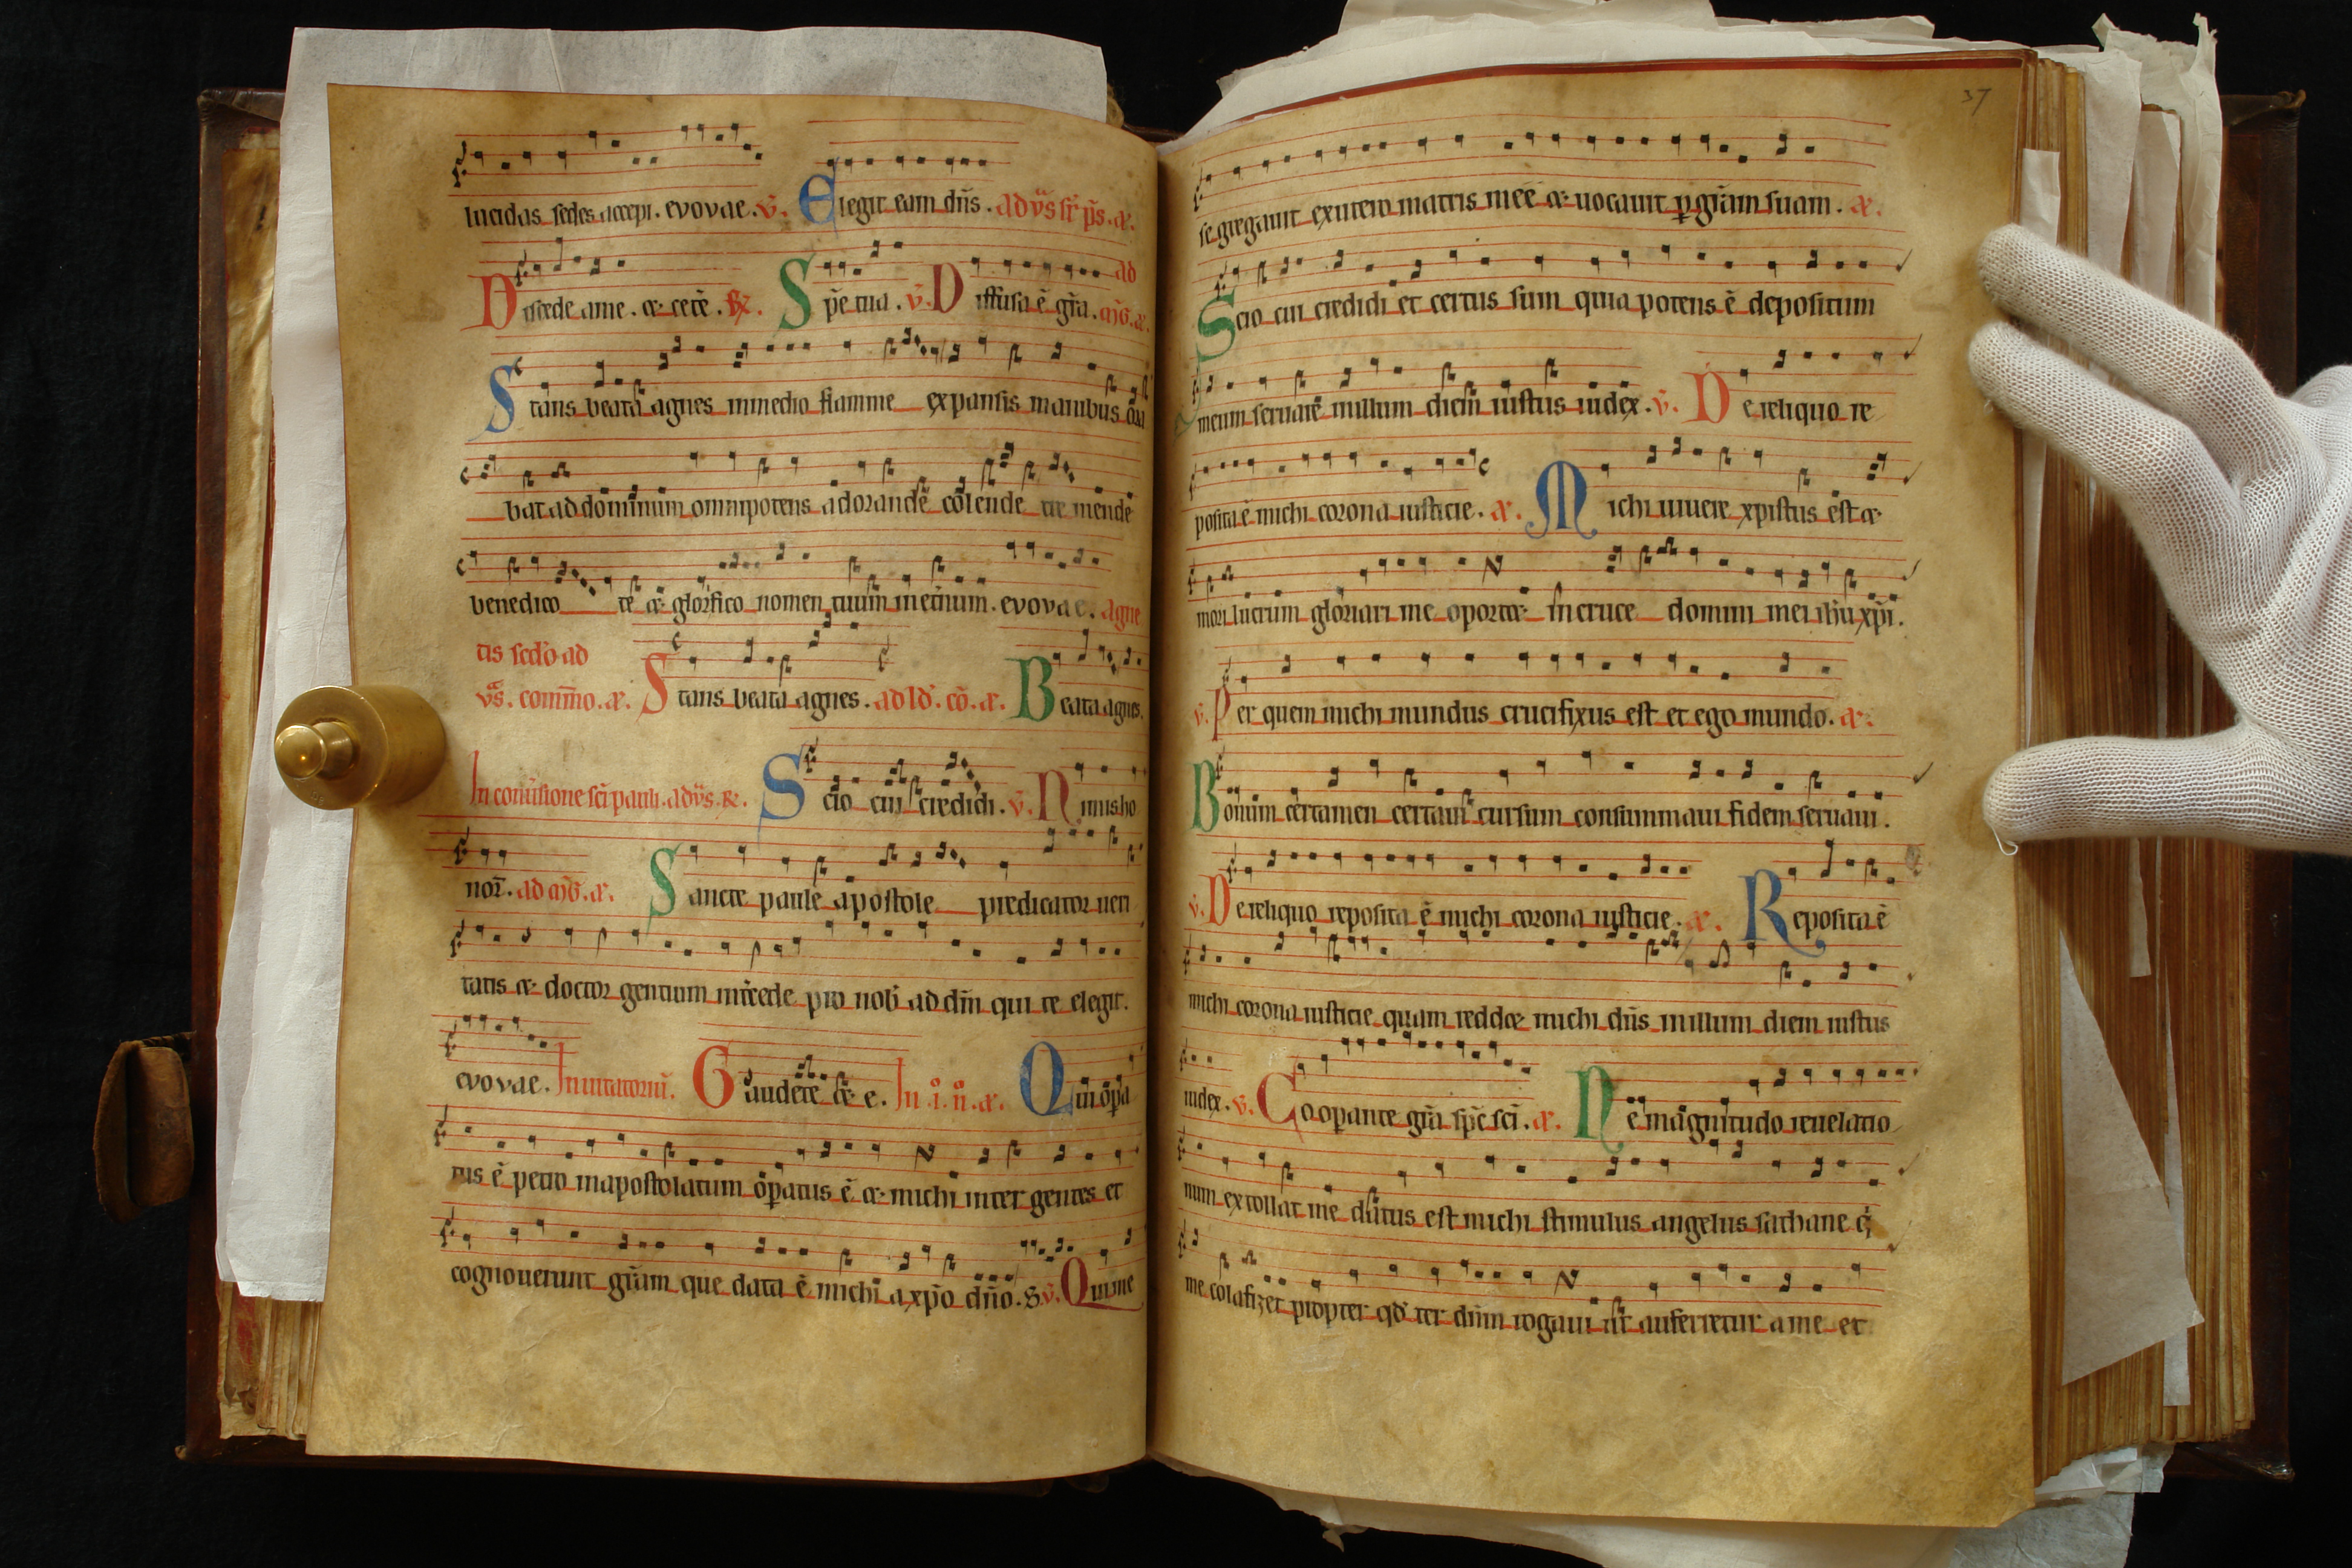 lucidas sedes accepi. evovae. v̄. Elegit eam dñs. ad v̄s sr̄ p̄s. æ.
Discede a me. æ cetē. R̃. Sp̄e tua. v̄. Diffusa ē gr̄a. ad
Stans beata agnes in medio flamme expansis manibus ora
bat ad dominum omnipotens adorande colende tremende
benedico te æ glorifico nomen tuum in eternum. evovae. agne
tis sed'o ad
v̄s. com̄mo. æ. Stans beata agnes. ad ld'. cō. æ. Beata agnes.
In cōuersione sc̄i pauli. ad v̄s. R̃. Scio cui credidi. v̄. Nimis ho
nor̄. ad mḡ. æ. Sancte paule apostole predicator ueri
tatis æ doctor gentium int̄cede pro nob' ad dm̄ qui te elegit.
evovae. Inuitatoriū. Gaudete æ e. In .i. n̄. æ. Qui op̄a
tus ē petro in apostolatum op̄atus ē æ michi inter gentes et
cognouerunt gr̄am que data ē michi a xp̄o dn̄o. s. v̄. Qui me
37
segregauit ex utero matris meē æ uocauit p̱ gr̄am suam. æ.
Scio cui credidi et certus sum quia potens ē depositum
meum seruare in illum diem iustus iudex. v̄. De reliquo re
posita ē michi corona iusticie. æ. Michi uiuere xpistus est æ
mori lucrum gloriari me oportæ in cruce domini mei ih̄u xp̄i.
v̄. Per quem michi mundus crucifixus est et ego mundo. æ.
Bonum certamen certaui cursum consummaui fidem seruaui.
v̄. De reliquo reposita ē michi corona iusticie. æ. Reposita ē
michi corona iusticie quam reddæ michi dn̄s in illum diem iustus
iudex. v̄. Coopante gr̄a sp̄c sc̄i. æ. Ne magnitudo reuelatio
num extollat me datus est michi stimulus angelus sathane q̄
me colafizet propter qd' ter dn̄m rogaui ut auferretur a me et